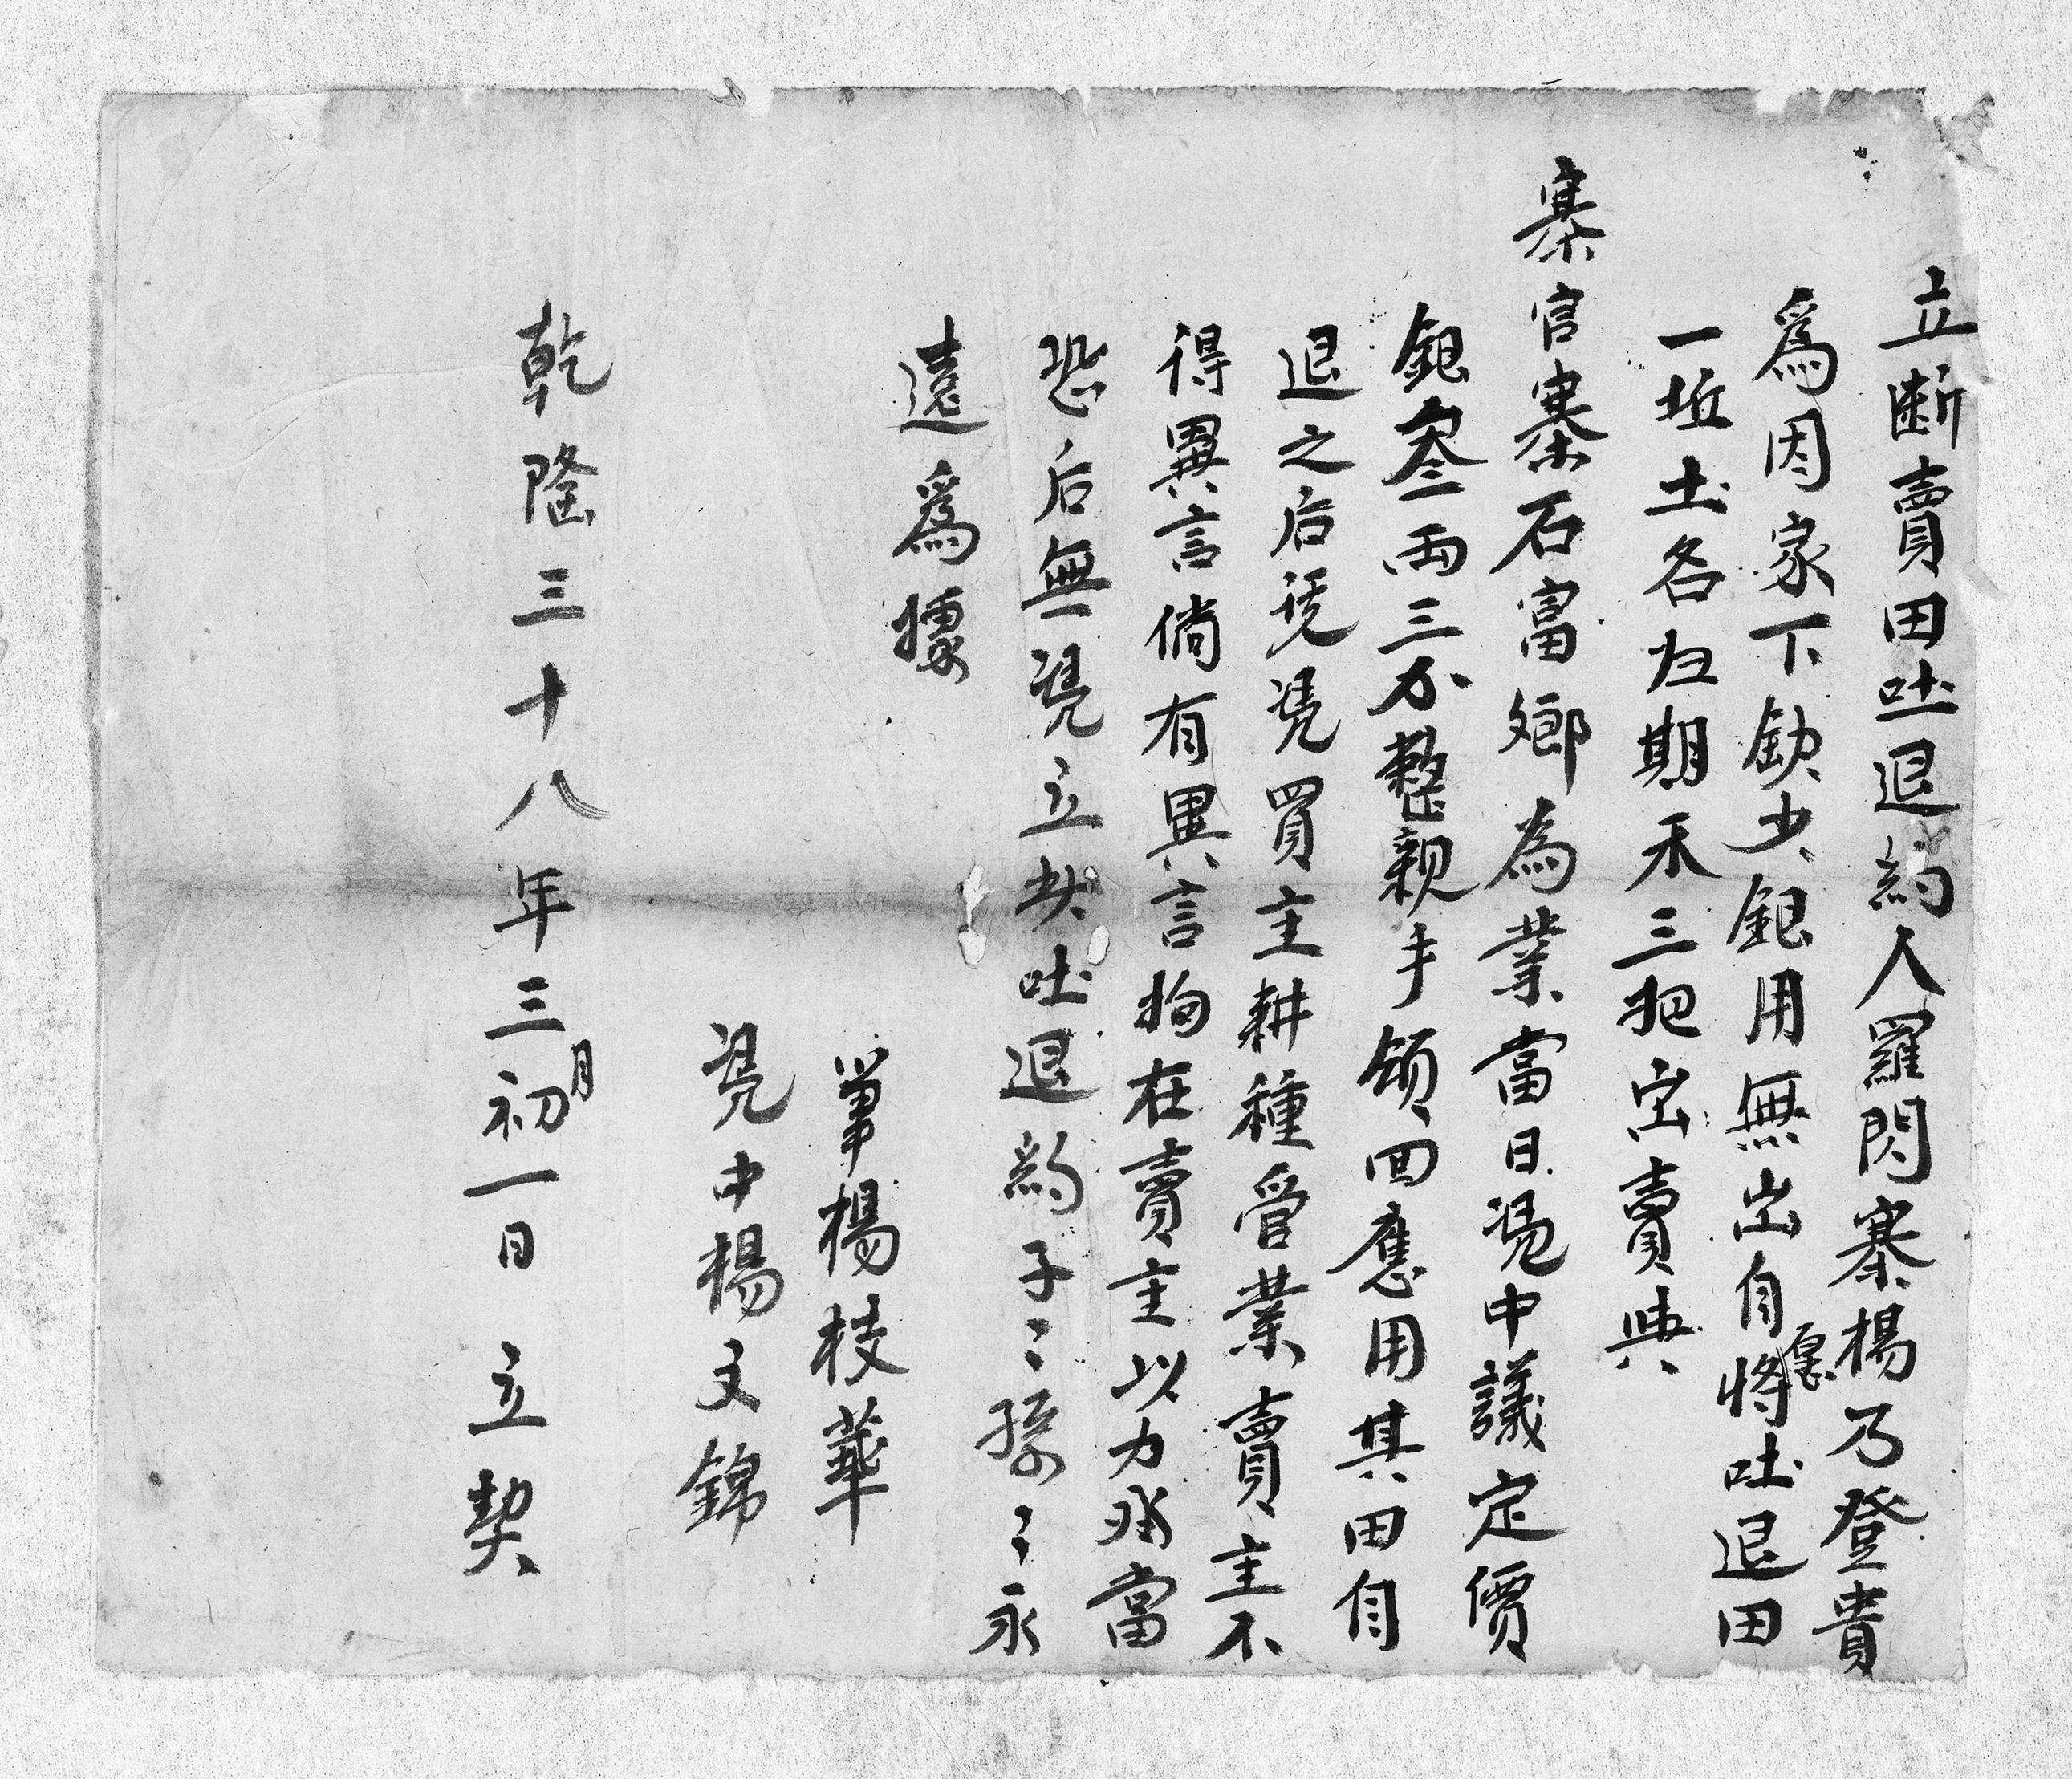 立断賣田吐退約人羅閃寨楊乃登貴
爲因家下欽少銀用無出自愿將吐退田
一坵土名归期禾三把出賣典
寨官寨石富鄉為業當日凴中議定價
銀叁両三分整親手領回應用其田自
退之后凴買主耕種管業賣主不
得異言倘有異言拘在賣主以力承當
恐后無凴立契吐退約子〻孫〻永
遠爲據
筆楊枝華
凴中楊文錦
乾隆三十八年三月初一日 立契